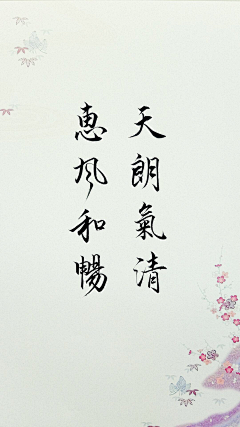 天朗氣清
惠风和暢